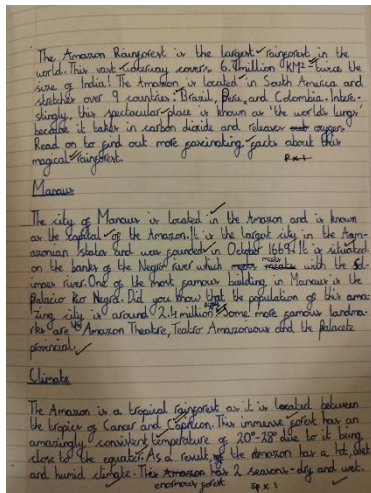 The Amazon Rainforest is the largest rainforest in the
world. This vast waterway covers 6.7 million KM² = twice the
size of India! The Amazon is located in South America and
stretches over 9 countries: Brazil, Peru, and Colombia. Intere-
stingly, this spectacular place is known as 'the world's lungs'
because it takes in carbon dioxide and releases out oxygen.
Read on to find out more fascinating facts about this
magical rainforest.
Manaus
The city of Manaus is located in the Amazon and is known
as the capital of the Amazon. It is the largest city in the Am-
azonian states and was founded in October 1669. It is situated
on the banks of the Negro river which meets with the Sol-
imoes river. One of the most famous building in Manaus is the
Palacio Rio Negro. Did you know that the population of this ama-
zing city is around 2.1 million? Some more famous landma-
rks are the Amazon Theatre, Teatro Amazonas and the Palacete
provincial.
Climate
The Amazon is a tropical rainforest as it is located between
the tropics of Cancer and Capricorn. This immense forest has an
amazingly consistent temperature of 20°-28° due to it being
close to the equator. As a result, the Amazon has a hot, wet
and humid climate. This Amazon has 2 seasons - dry and wet.
enormous forest sp x 1